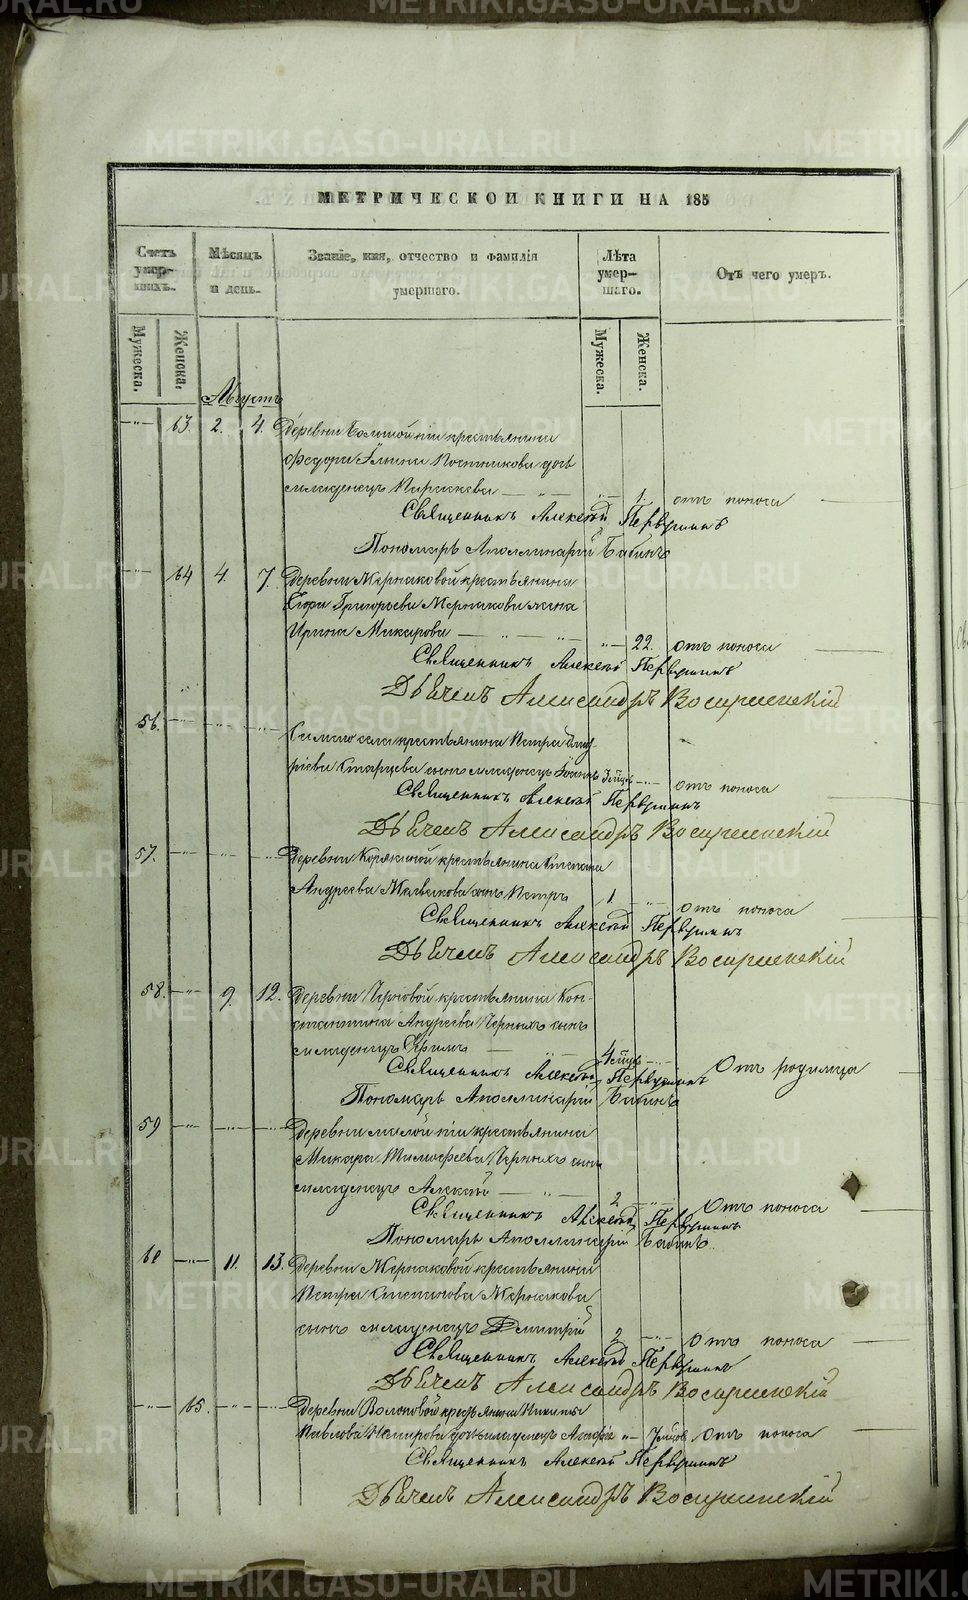 МЕТРИЧЕСКОЙ КНИГИ НА 185
Счетъ умер-шихъ.
Мѣсяцъ и день.
Званіе, имя, отчество и фамилія умершаго.
Лѣта умер-шаго.
Отъ чего умеръ.
Мужеска.
Женска.
Мужеска.
Женска.
Августъ
63 2. 4. Деревни крестьянина
Федора дочь
младенецъ Параскева 1. отъ поноса
Священникъ Алексѣй Первушинъ
Пономарь Аполлинарій Бабинъ
64 4. 7. Деревни крестьянина
Григорьева жена
Ирина Макарова 22. отъ поноса
Священникъ Алексѣй Первушинъ
Дьячекъ Александръ Воскресенскій
56.
села крестьянина Петра
Старцева сынъ младенецъ Іоаннъ отъ поноса
Священникъ Алексѣй Первушинъ
Дьячекъ Александръ Воскресенскій
57. Деревни крестьянина Степана
Андреева сынъ Петръ 1. отъ поноса
Священникъ Алексѣй Первушинъ
Дьячекъ Александръ Воскресенскій
58. 9. 12. Деревни Черновой крестьянина Кон-
стантина Андреева Черныхъ сынъ
младенецъ Ефимъ 4 Отъ родимца
Священникъ Алексѣй Первушинъ
Пономарь Аполлинарій Бабинъ
59 Деревни малой крестьянина
Макара Тимофеева Черныхъ сынъ
младенецъ Алексѣй 2 Отъ поноса
Священникъ Алексѣй Первушинъ
Пономарь Аполлинарій Бабинъ
60 11. 13. Деревни крестьянина
Петра Степанова
сынъ младенецъ Дмитрій 2 Отъ поноса
Священникъ Алексѣй Первушинъ
Дьячекъ Александръ Воскресенскій
65. Деревни Волоковой крестьянина Никиты
Павлова дочь младенецъ Отъ поноса
Священникъ Алексѣй Первушинъ
Дьячекъ Александръ Воскресенскій
METRIKI.GASO-URAL.RU